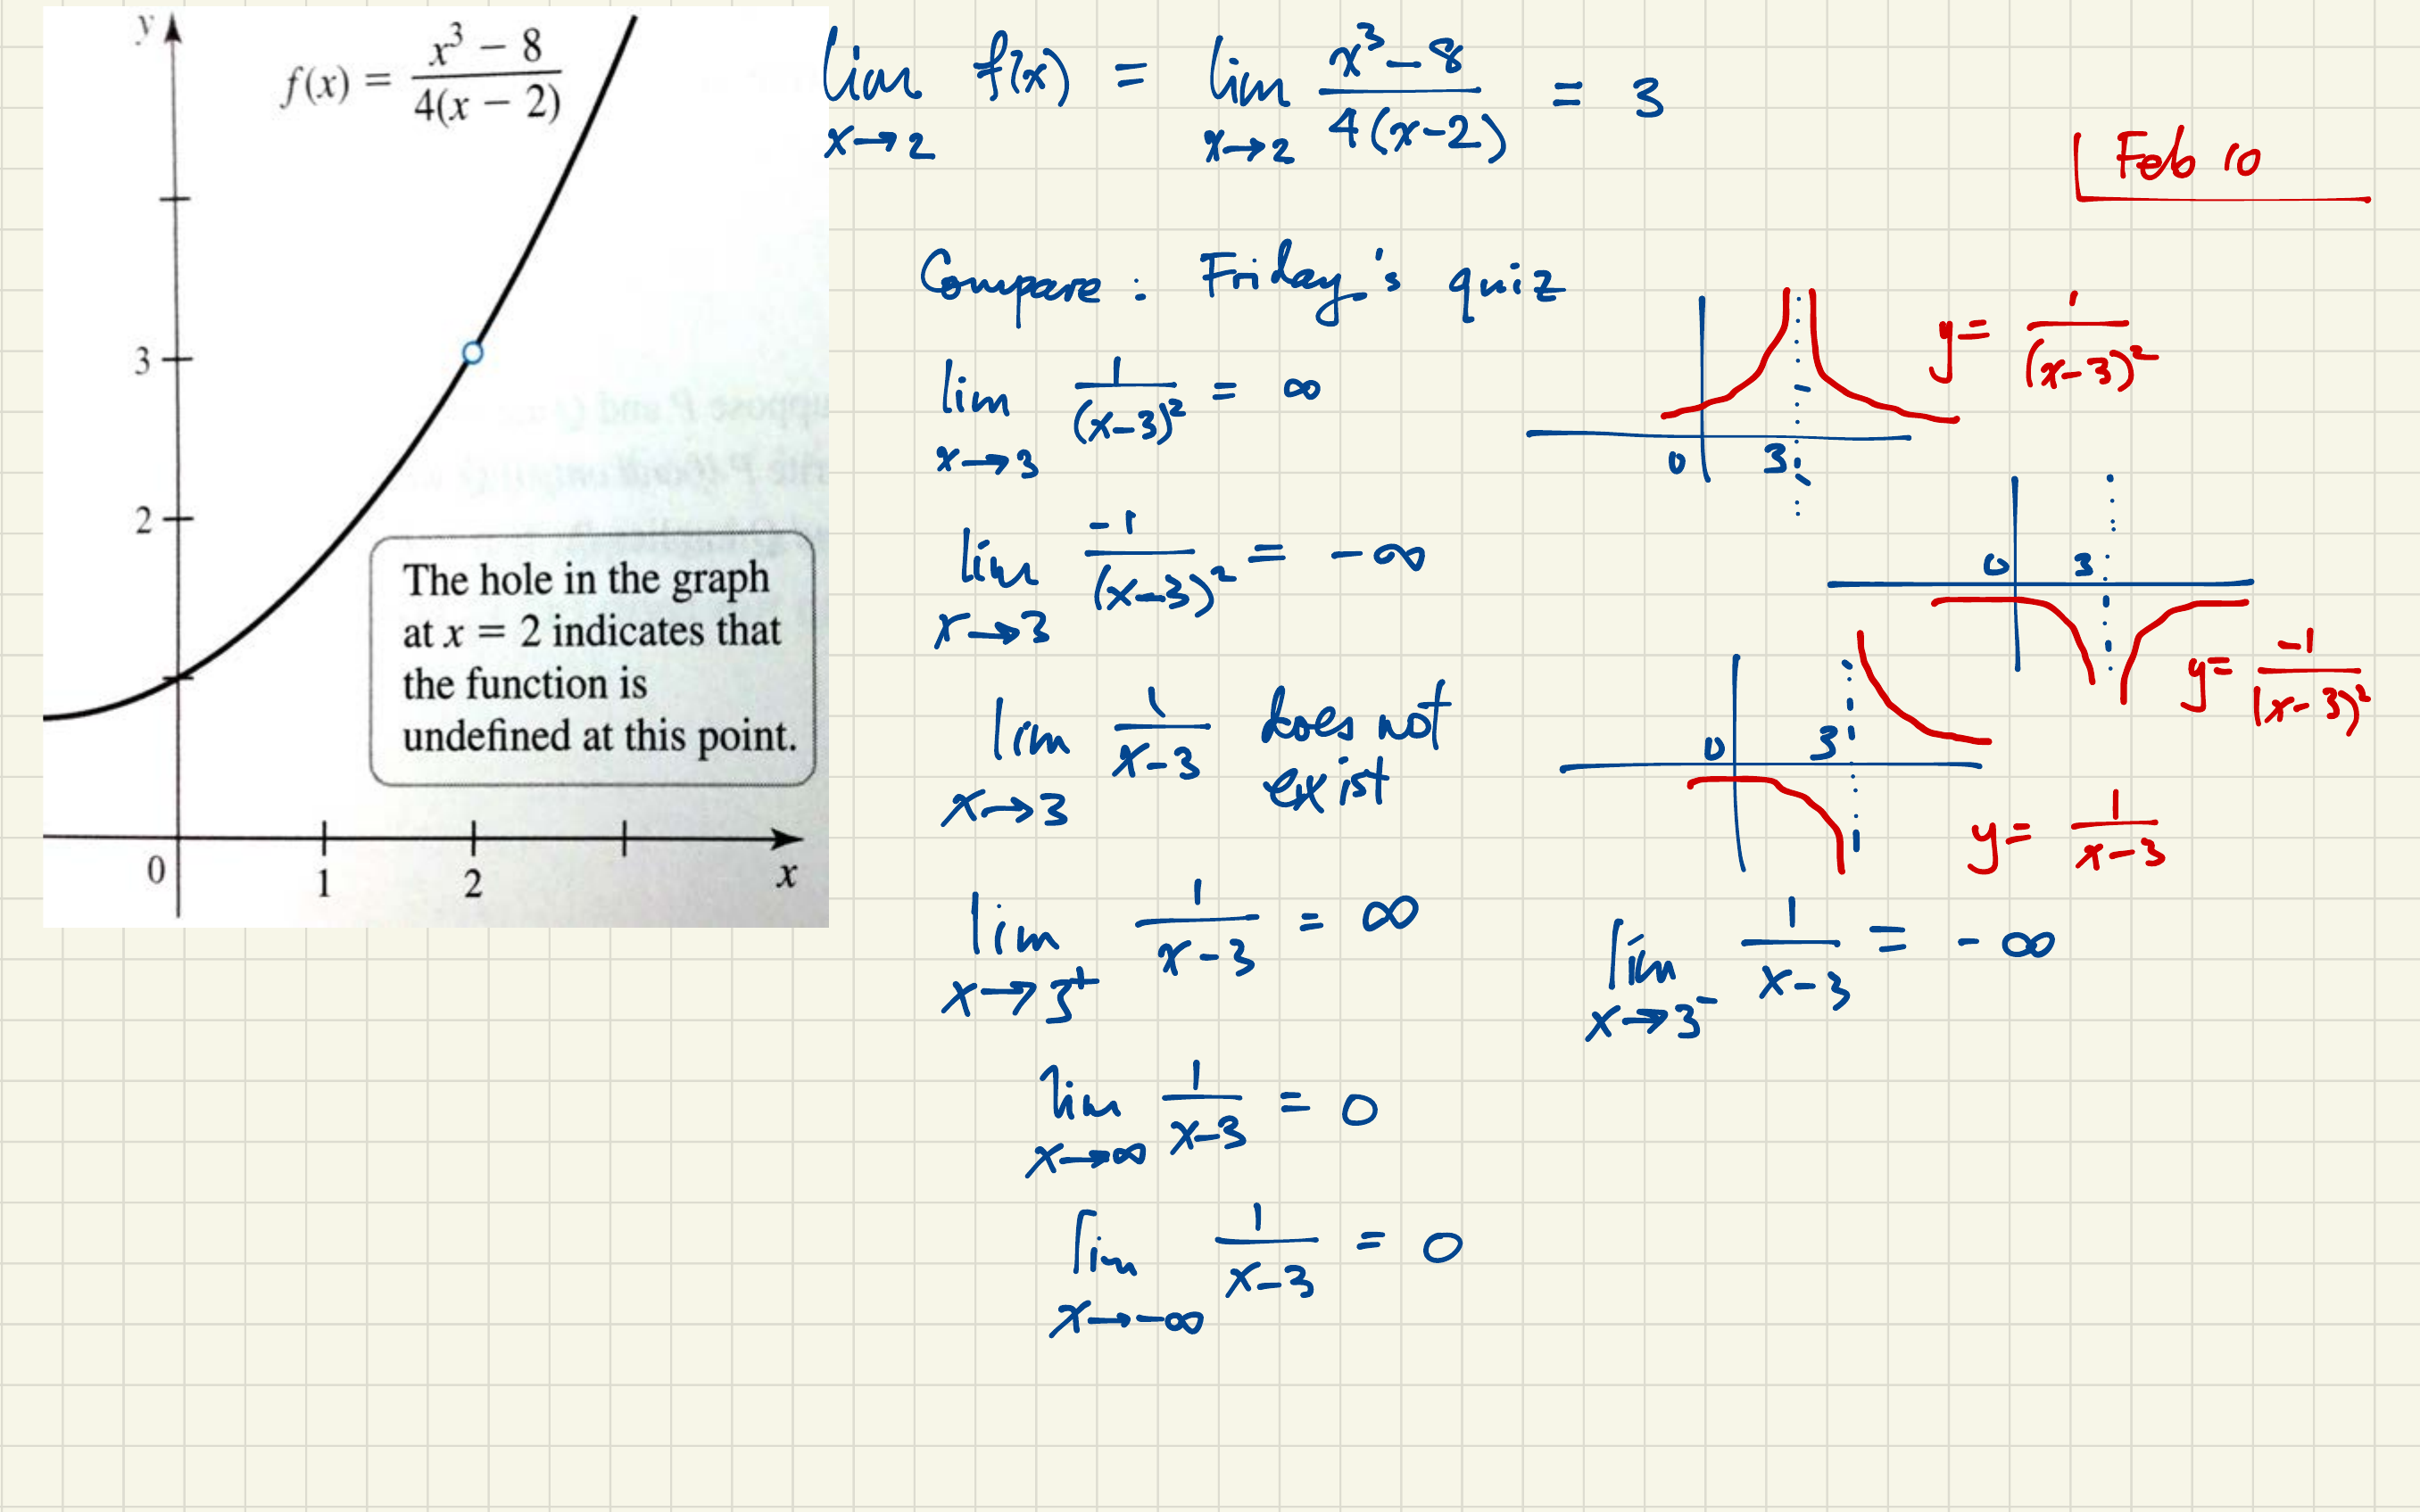 y
f(x) = x³ − 8 / 4(x − 2)
3
2
The hole in the graph
at x = 2 indicates that
the function is
undefined at this point.
0 1 2 x
lim x→2 f(x) = lim x→2 x³−8 / 4(x−2) = 3
Feb 10
Compare : Friday's quiz
lim x→3 1/(x−3)² = ∞
0 3
y = 1/(x−3)²
lim x→3 −1/(x−3)² = −∞
0 3
y = −1/(x−3)²
lim x→3 1/(x−3) does not
exist
0 3
y = 1/(x−3)
lim x→3⁺ 1/(x−3) = ∞
lim x→3⁻ 1/(x−3) = −∞
lim x→∞ 1/(x−3) = 0
lim x→−∞ 1/(x−3) = 0